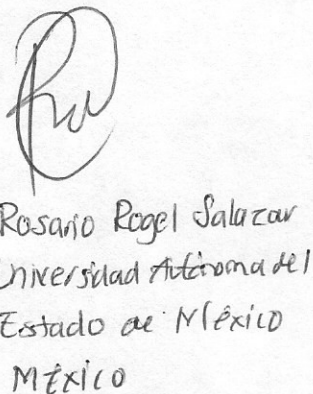 Rosario Rogel Salazar
Universidad Autónoma del
Estado de México
México